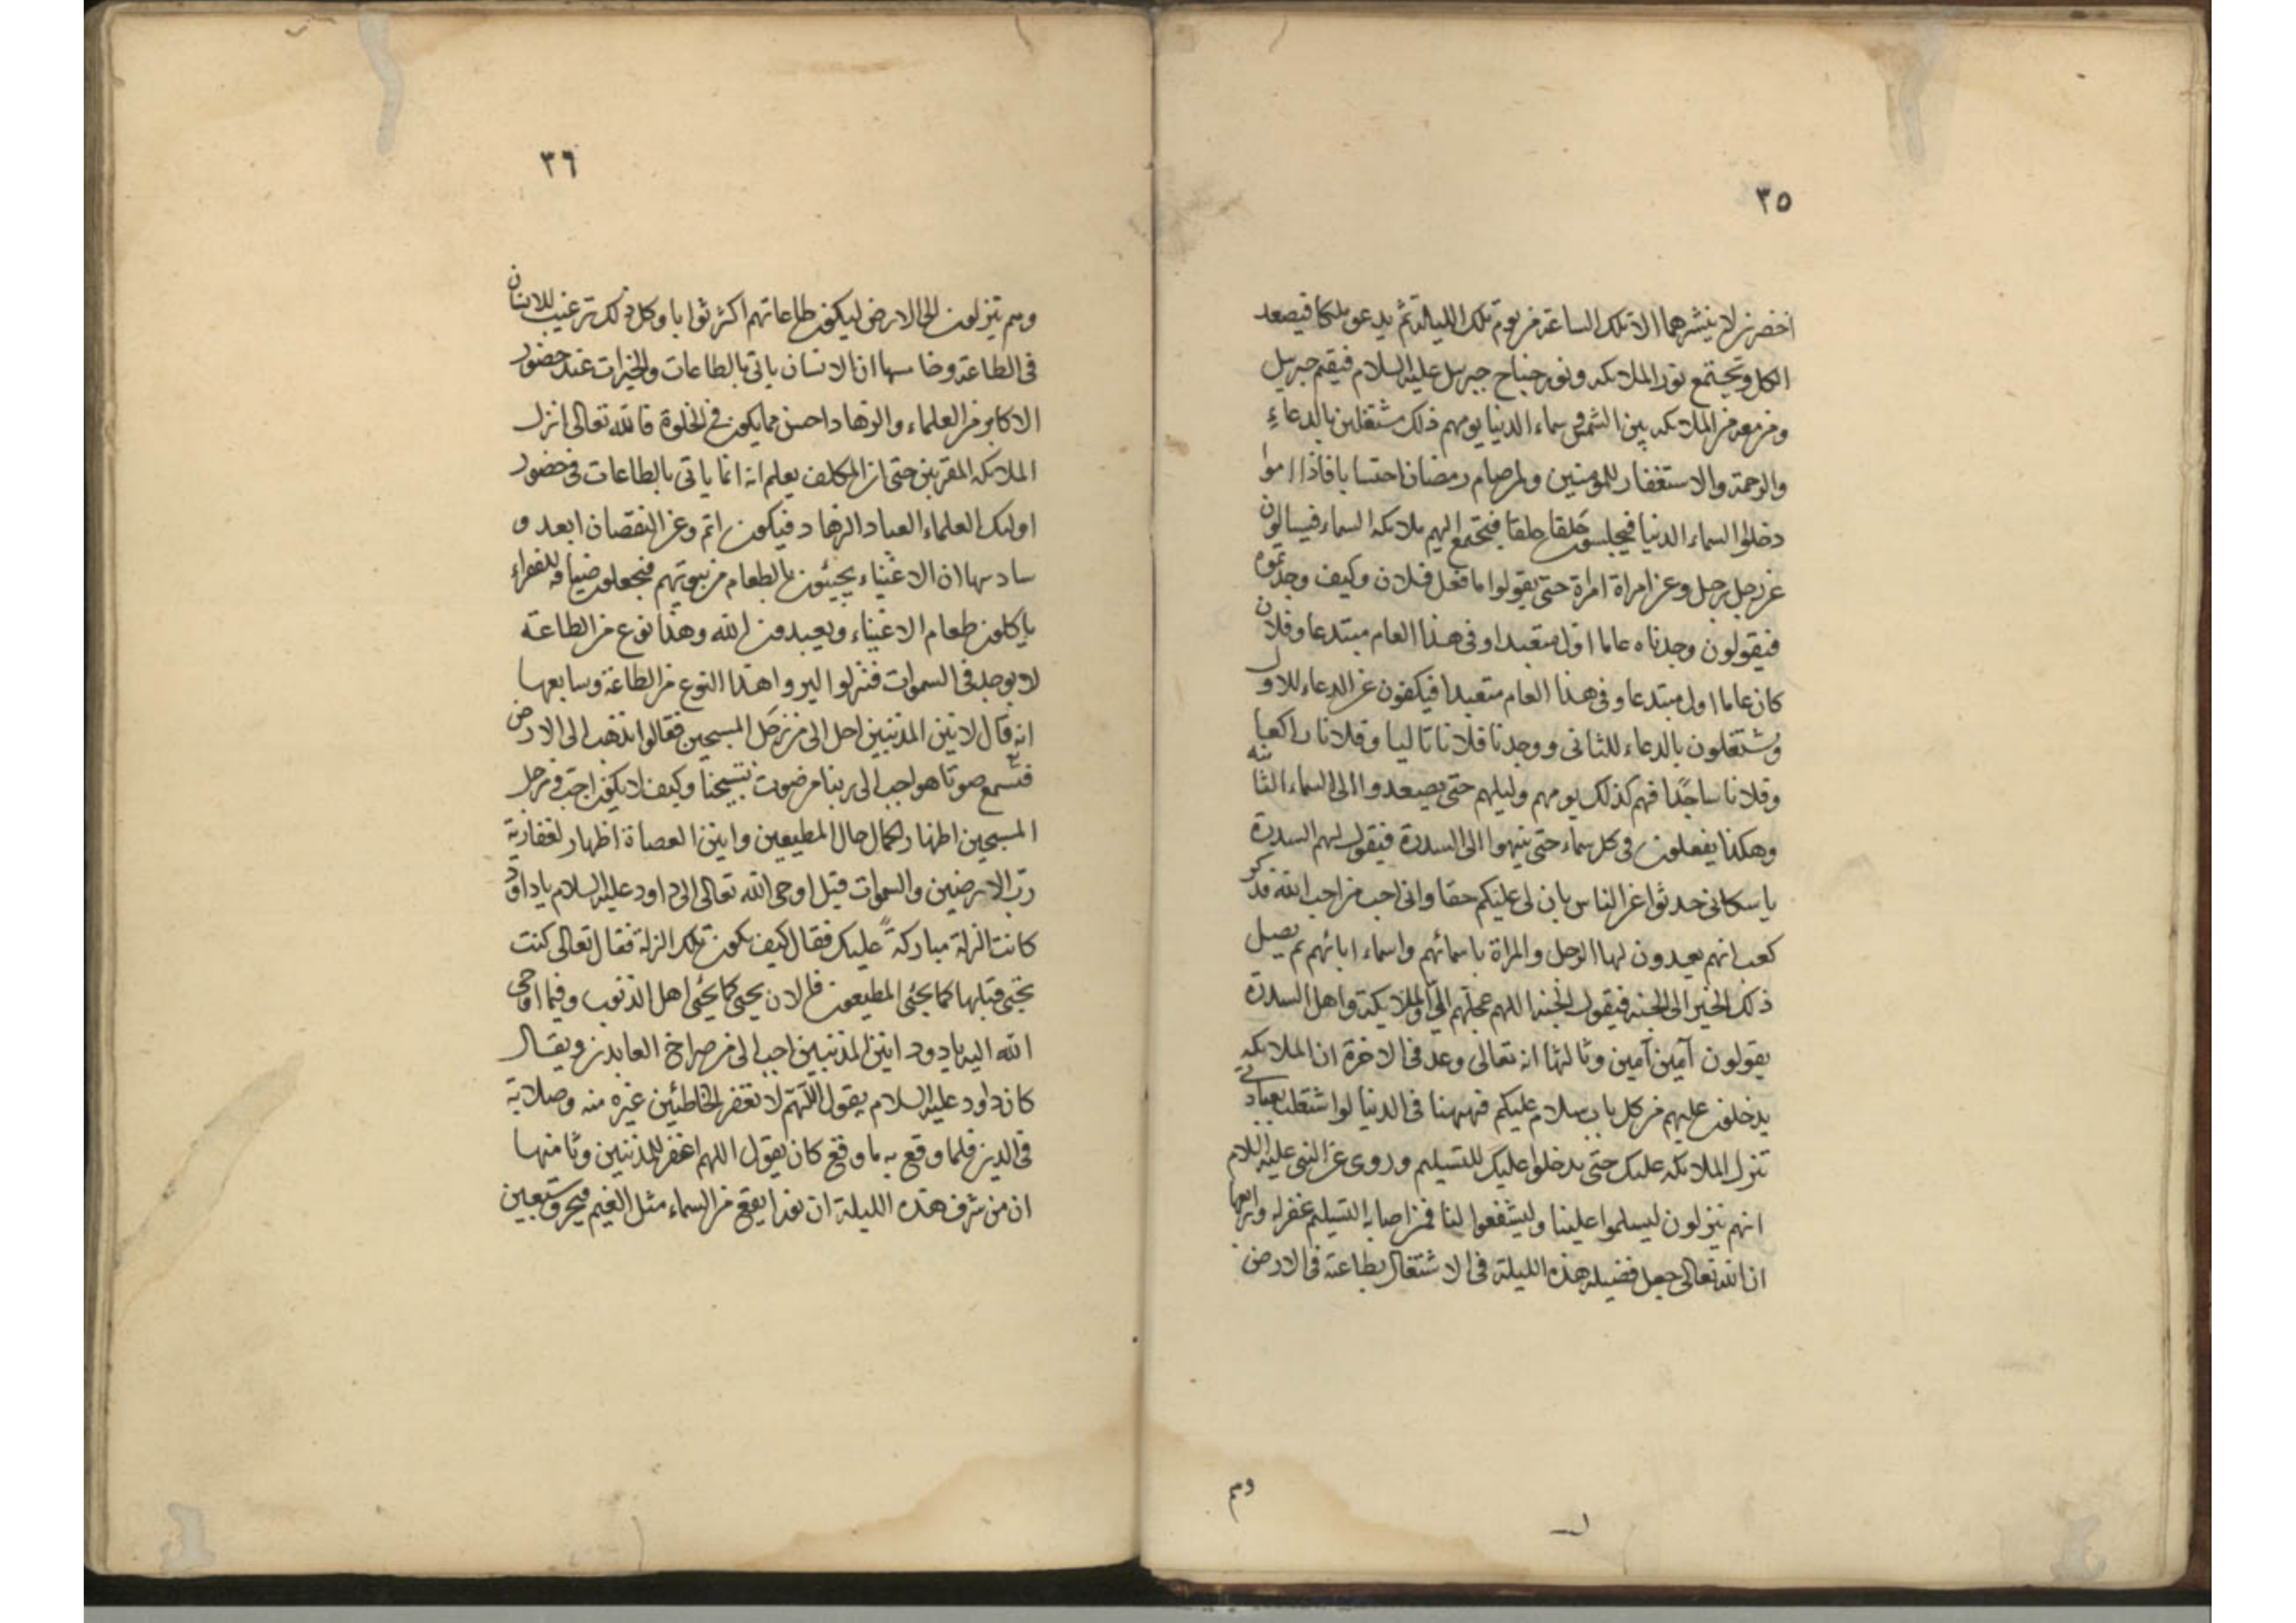 ٣٥
اخضرين لا ينشرهما الا تلك الساعة من يوم تلك الليلة ثم يدعو ملكا فيصعد
الكل ويجتمع نور الملائكه ونور جناح جبريل عليه السلام فيقيم جبريل
ومن معه من الملائكه بين الشمس وسماء الدنيا يومهم ذلك مشتغلين بالدعاء
والرحمة والاستغفار للمؤمنين ولمن صام رمضان احتسابا فاذا امسوا
دخلوا السماء الدنيا فيجلسون حلقا حلقا فيجتمع اليهم ملائكه السماء فيسالون
عن رجل رجل وعن امراة امراة حتى يقولوا ما فعل فلان وكيف وجدتموه
فيقولون وجدناه عاما اول متعبدا وفى هذا العام مبتدعا وفلان
كان عاما اول مبتدعا وفى هذا العام متعبدا فيكفون عن الدعاء للاول
ويشتغلون بالدعاء للثانى ووجدنا فلانا تاليا وفلانا راكعا
وفلانا ساجدا فهم كذلك يومهم وليلهم حتى يصعدوا الى السماء الثانيه
وهكذا يفعلون فى كل سماء حتى ينتهوا الى السدرة فيقول لهم السدرة
يا سكانى حدثوا عن الناس بان لى عليكم حقا وانى احب من احب الله فذكر
كعب انهم يعدون لها الرجل والمراة باسمائهم واسماء ابائهم ثم يصل
ذلك الخبر الى الجنه فيقول الجنه اللهم عجلهم الىّ والملائكة واهل السدرة
يقولون آمين آمين وثالثها انه تعالى وعد فى الاخرة ان الملائكه
يدخلون عليهم من كل باب سلام عليكم فههنا فى الدنيا لو اشتغلت بعبادتى
تنزل الملائكه عليك حتى يدخلوا عليك للتسليم وروى عن النبى عليه السلام
انهم ينزلون ليسلموا علينا وليشفعوا لنا فمن اصابه التسليم غفر له ورابعها
ان الله تعالى جعل فضيله هذه الليلة فى الاشتغال بطاعته فى الارض
وهم
٣٦
وهم ينزلون الى الارض ليكون طاعاتهم اكثر ثوابا وكل ذلك ترغيب للانسان
فى الطاعة وخامسها ان الانسان ياتى بالطاعات والخيرات عند حضور
الاكابر من العلماء والزهاد احسن مما يكون فى الخلوة فالله تعالى انزل
الملائكه المقربين حتى ان المكلف يعلم انه انما ياتى بالطاعات فى حضور
اوليك العلماء العباد الزهاد فيكون اتم وعن النقصان ابعد و
سادسها ان الاغنياء يجيئون بالطعام من بيوتهم فيجعلون ضيافه للفقراء
ياكلون طعام الاغنياء ويعبدون الله وهذا نوع من الطاعة
لا يوجد فى السموات فنزلوا ليروا هذا النوع من الطاعة وسابعها
انه قال لانين المذنبين احب الى من زجل المسبحين فقالوا نذهب الى الارض
فنسمع صوتا هو احب الى ربنا من صوت تسبيحنا وكيف لا يكون احب وزجل
المسبحين اظهار لكمال حال المطيعين وانين العصاة اظهار لغفارية
رب الارضين والسموات قيل اوحى الله تعالى الى داود عليه السلام يا داود
كانت الزلة مباركة عليك فقال كيف يكون تلك الزلة فقال تعالى كنت
تجئ قبلها كما يجئ المطيعون فالان تجئ كما يجئ اهل الذنوب وفيما اوحى
الله اليه يا داود انين المذنبين احب الى من صراخ العابدين ويقال
كان داود عليه السلام يقول اللهم لا تغفر للخاطئين غيرة منه وصلابة
فى الدين فلما وقع به ما وقع كان يقول اللهم اغفر للمذنبين وثامنها
ان من شرف هذه الليلة ان نورا يقع من السماء مثل الغيم فيحرق سبعين